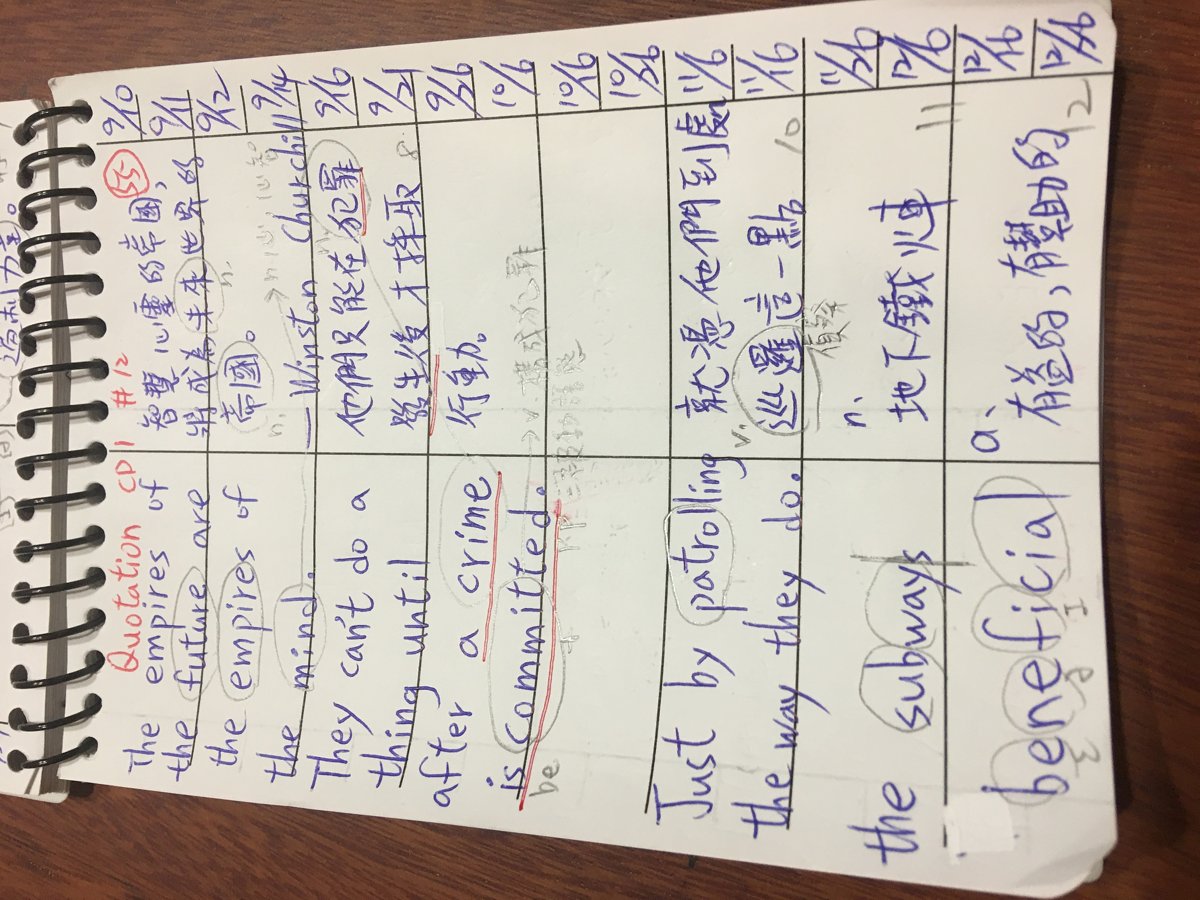 Quotation CD1 #12 55
The empires of
the future are
the empires of
the mind.
智慧心靈的帝國,
將成為未來世界的
帝國。
n.
n.
— Winston Churchill
They can't do a
thing until
after a crime
is committed.
be
他們只能在犯罪
發生後才採取
行動。
8
→ v. 構成犯罪
Just by patrolling
the way they do.
就憑他們到處
v. 巡邏這一點
10
the subways
n.
地下鐵火車
11
beneficial
a.
有益的,有幫助的
12
9/10
9/11
9/12
9/14
9/16
9/21
9/26
10/6
10/16
10/26
11/6
11/16
11/26
12/6
12/16
12/26